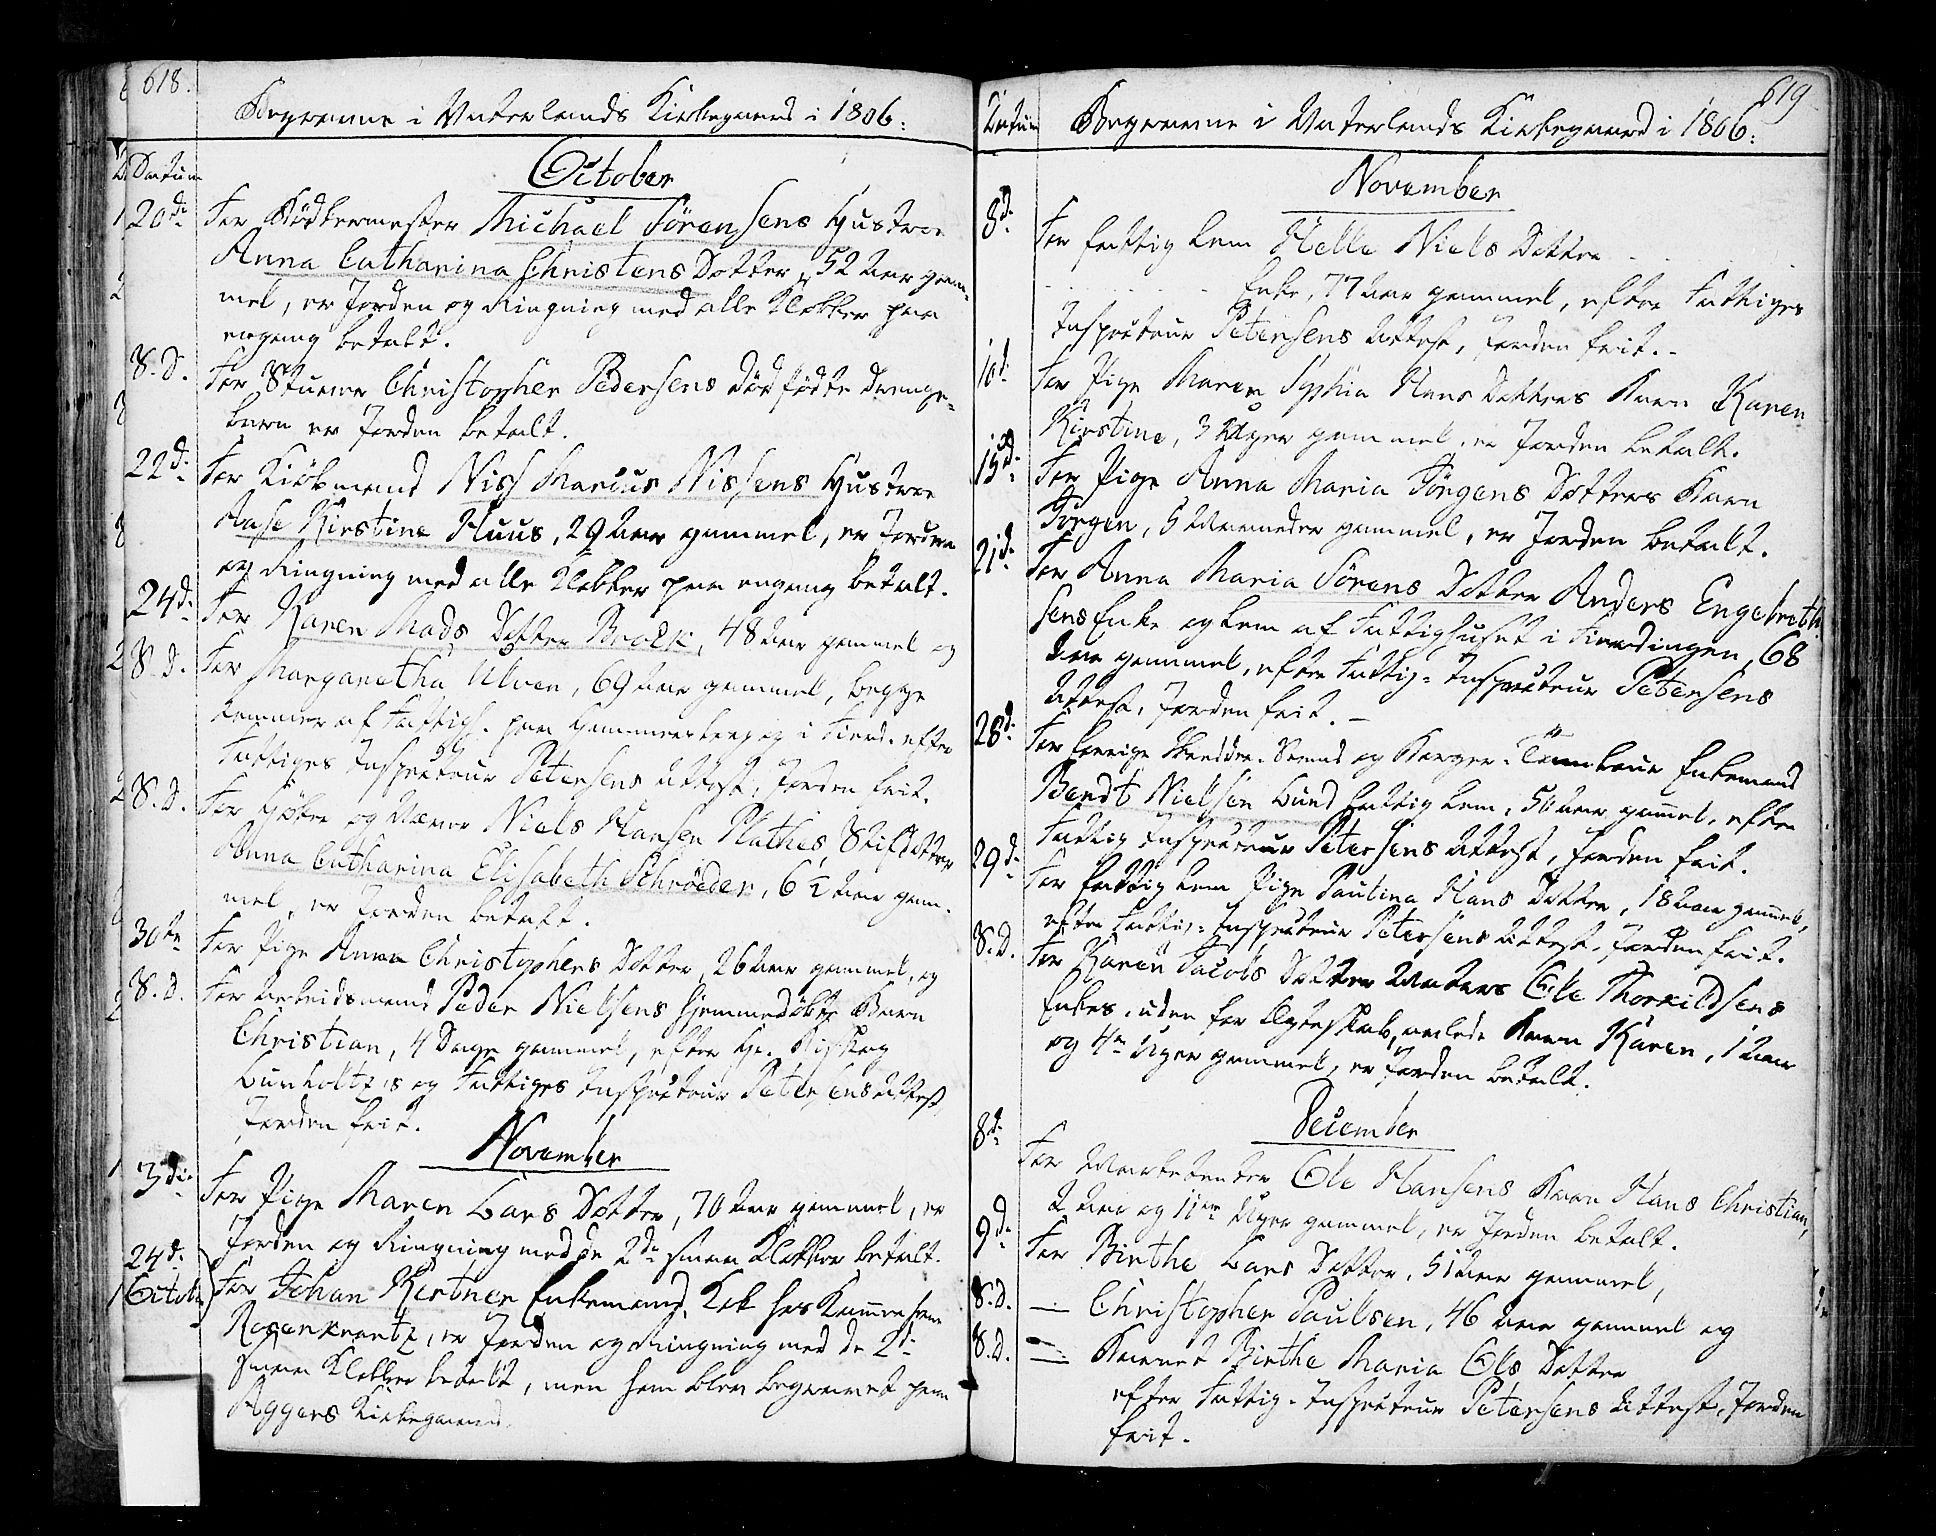 618.
Begravne i Vaterlands Kirkegaard i 1806.
Datum
October
20de For Bødkermester Michael Sörensens Hustrue
Anna Catharina Christens Dotter, 52 Aar gam-
mel, er Jorden og Ringning med alle Klokker paa
engang betalt.
S. D. For Stuver Christopher Pedersens dödfödte Drenge-
barn er Jorden betalt.
22d. For Kiöbmand Niss Marcus Nissens Hustrue
Aase Kirstine Huus, 29 Aar gammel, er Jorden
og Ringning med alle Klokker paa engang betalt.
24d. For Karen Mads Dotter Brock, 48 Aar gammel og
S. D. For Margaretha Ulven, 69 Aar gammel, begge
Lemmer af Fattigh. paa i Fierd. efter
Fattiges Inspecteur Petersens Attest, Jorden frit.
S. D. For Niels Hansen Plathes Stifdotter
Anna Catharina Elisabeth Schröeder, 6½ Aar gam-
mel, er Jorden betalt.
30te For Pige Anna Christophers Dotter, 26 Aar gammel, og
S. D. For Arbeidsmand Peder Nielsens hjemmedøbte Barn
Christian, 4 Dage gammel, efter Hr. Bisp og
og Fattiges Inspecteur Petersens Attest,
Jorden frit.
November
3die For Pige Maren Lars Dotter, 70 Aar gammel, er
Jorden og Ringning med de 2de smaa Klokker betalt.
24d. October For Johan Kertner Enkemand, Kok hos Kammerherre
Rosenkrantz, er Jorden og Ringning med de 2de
smaa Klokker betalt, men han blev begravet paa
Aggers Kirkegaard.
619
Datum
Begravne i Vaterlands Kirkegaard i 1806.
November
8d. For fattig Lem Helle Niels Dotter
Enke, 77 Aar gammel, efter Fattiges
Inspecteur Petersens Attest, Jorden frit.
10d. For Pige Maren Sophia Hans Dotters Barn Karen
Kirstine, 3 Uger gammel, er Jorden betalt.
15d. For Pige Anna Maria Jörgens Dotters Barn
Jörgen, 5 Maaneder gammel, er Jorden betalt.
21d. For Anna Maria Sörens Dotter Anders Engebreth
sens Enke og Lem af Fattighuset i Fierdingen, 68
Aar gammel, efter Fattig-Inspecteur Petersens
Attest, Jorden frit.
28d. For forrige Skrædder-Svend og Borger-Tambour Enkemand
Bendt Nielsen Lund fattig Lem, 50 Aar gammel, efter
Fattig Inspecteur Petersens Attest, Jorden frit.
29d. For fattig Lem Pige Paulina Hans Dotter, 18 Aar gammel,
efter Fattig-Inspecteur Petersens Attest, Jorden frit.
S. D. For Karen Jacobs Dotter Ole Thorkildsens
Enkes, uden for Ægteskab, avlede Barn Karen, 1 Aar
og 4re Uger gammel, er Jorden betalt.
December
8d. For Marketender Ole Hansens Barn Hans Christian,
2 Aar og 11ve Uger gammel, er Jorden betalt.
9d. For Birthe Lars Dotter, 51 Aar gammel,
S. D. — Christopher Paulsen, 46 Aar gammel og
S. D. — Barnet Birthe Maria Ols Dotter
efter Fattig-Inspecteur Petersens Attest, Jorden
frit.